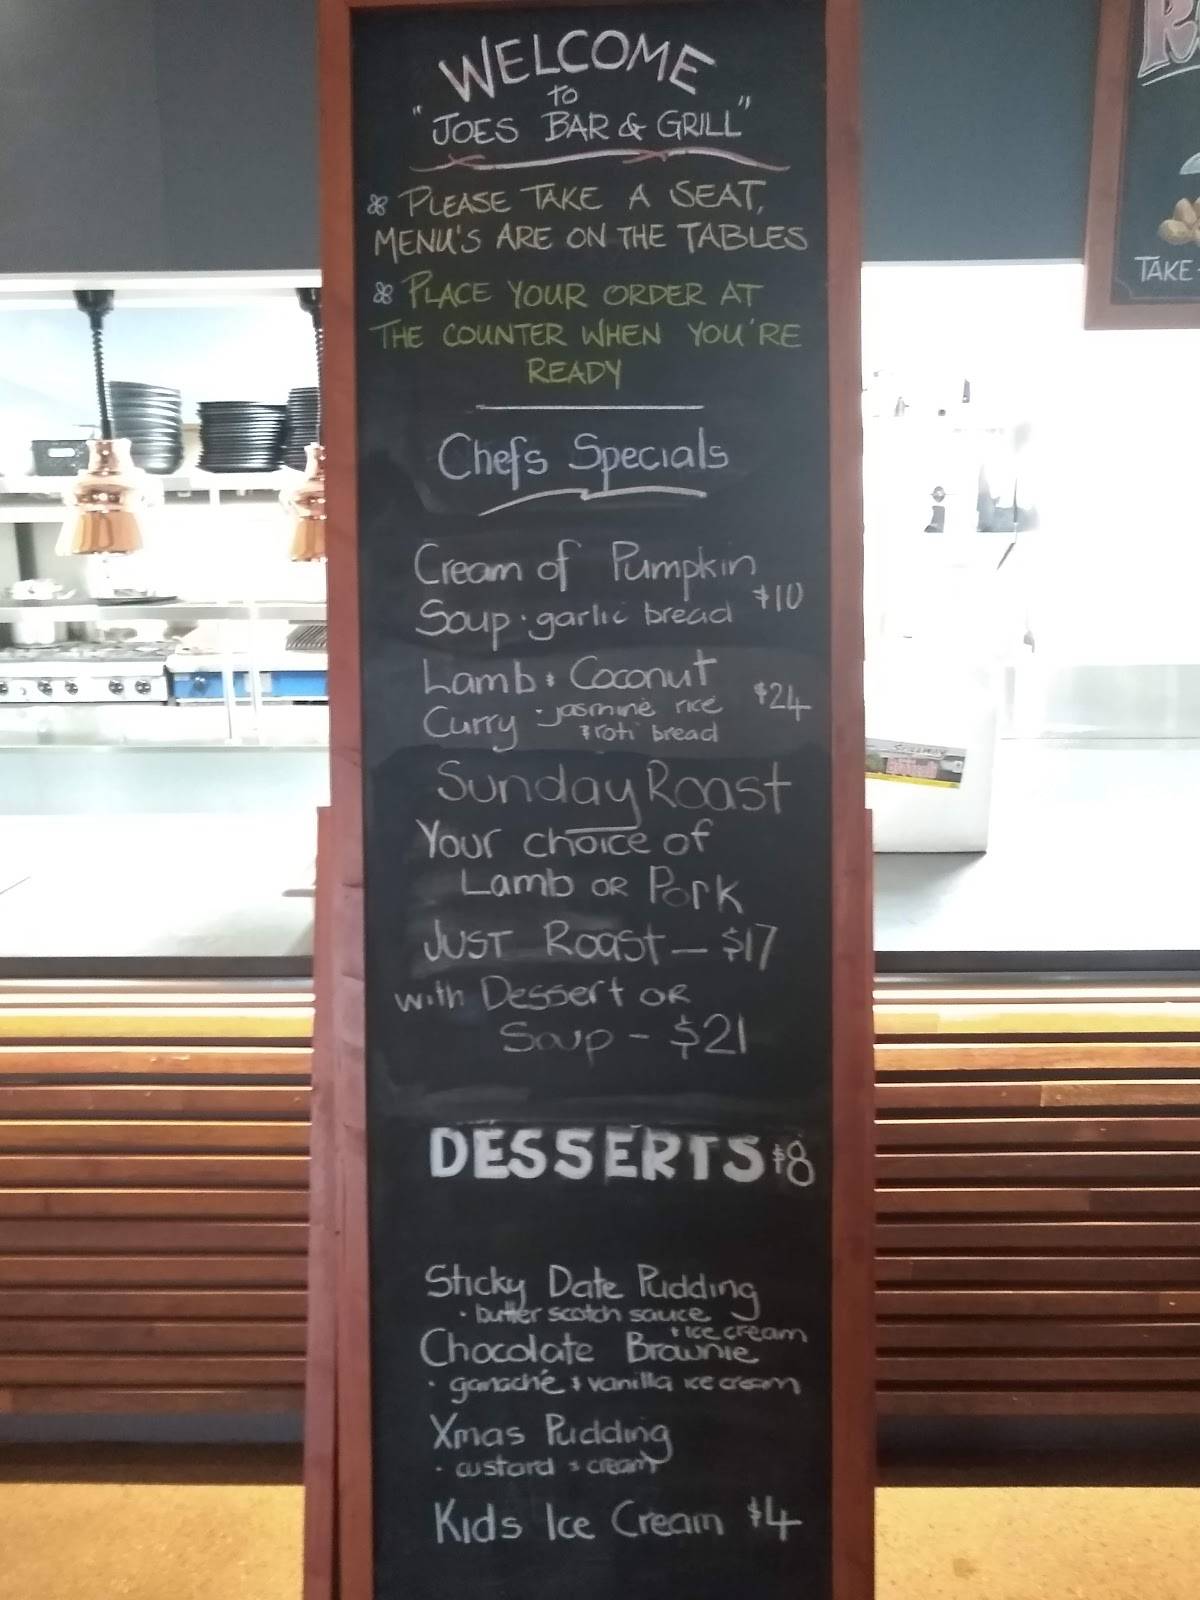 WELCOME
TO
"JOES BAR & GRILL"
PLEASE TAKE A SEAT,
MENU'S ARE ON THE TABLES
PLACE YOUR ORDER AT
THE COUNTER WHEN YOU'RE
READY
Chefs Specials
Cream of Pumpkin
Soup · garlic bread $10
Lamb & Coconut
Curry · jasmine rice $24
& roti bread
Sunday Roast
Your choice of
Lamb OR Pork
JUST Roast — $17
with Dessert OR
Soup - $21
DESSERTS $8
Sticky Date Pudding
· butter scotch sauce
+ ice cream
Chocolate Brownie
· ganache & vanilla ice cream
Xmas Pudding
· custard & cream
Kids Ice Cream $4
TAKE